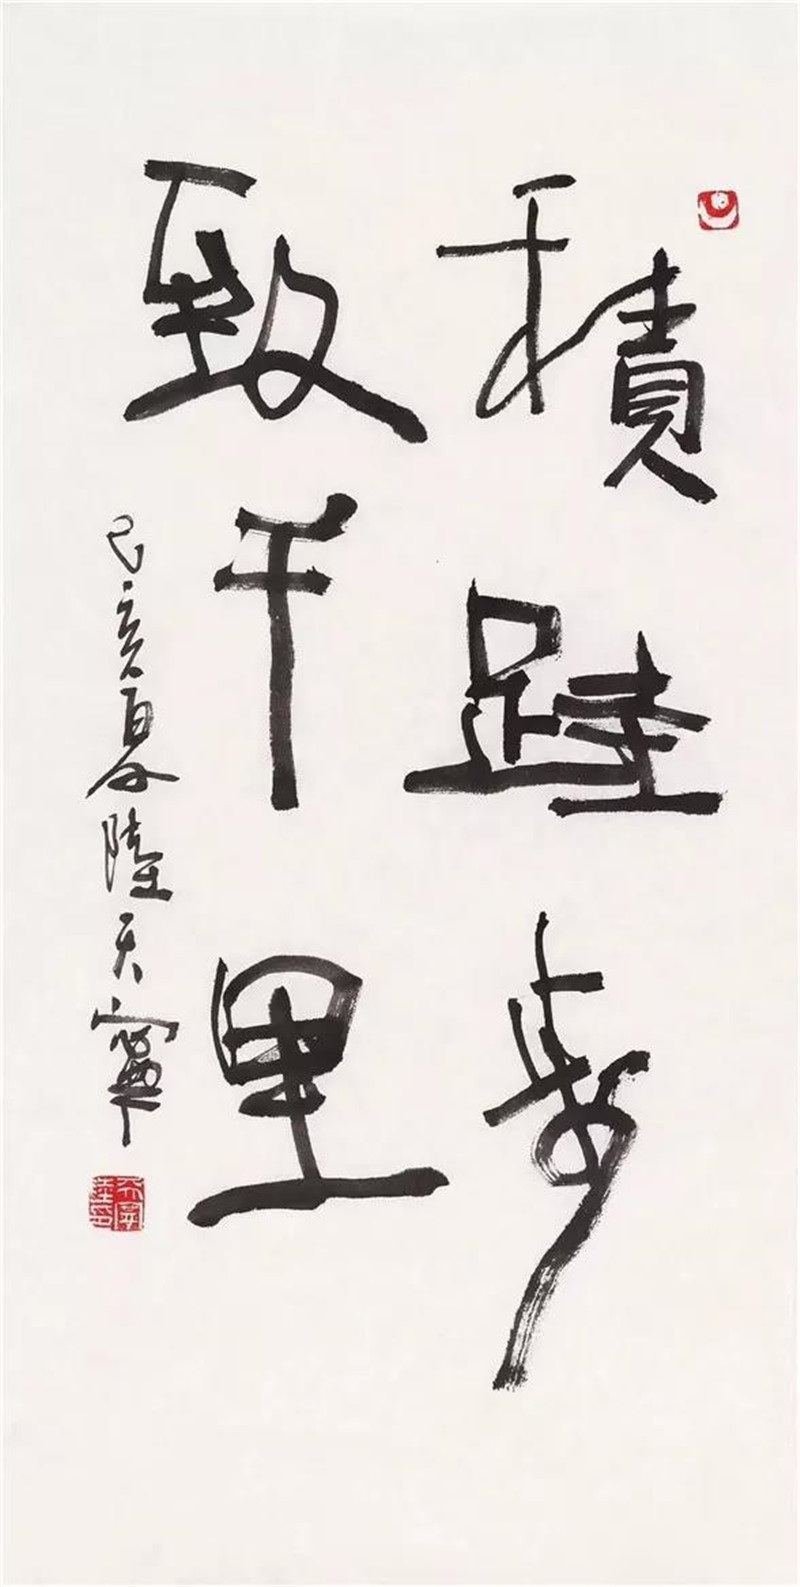 積跬步
致千里
己亥夏陸天寧